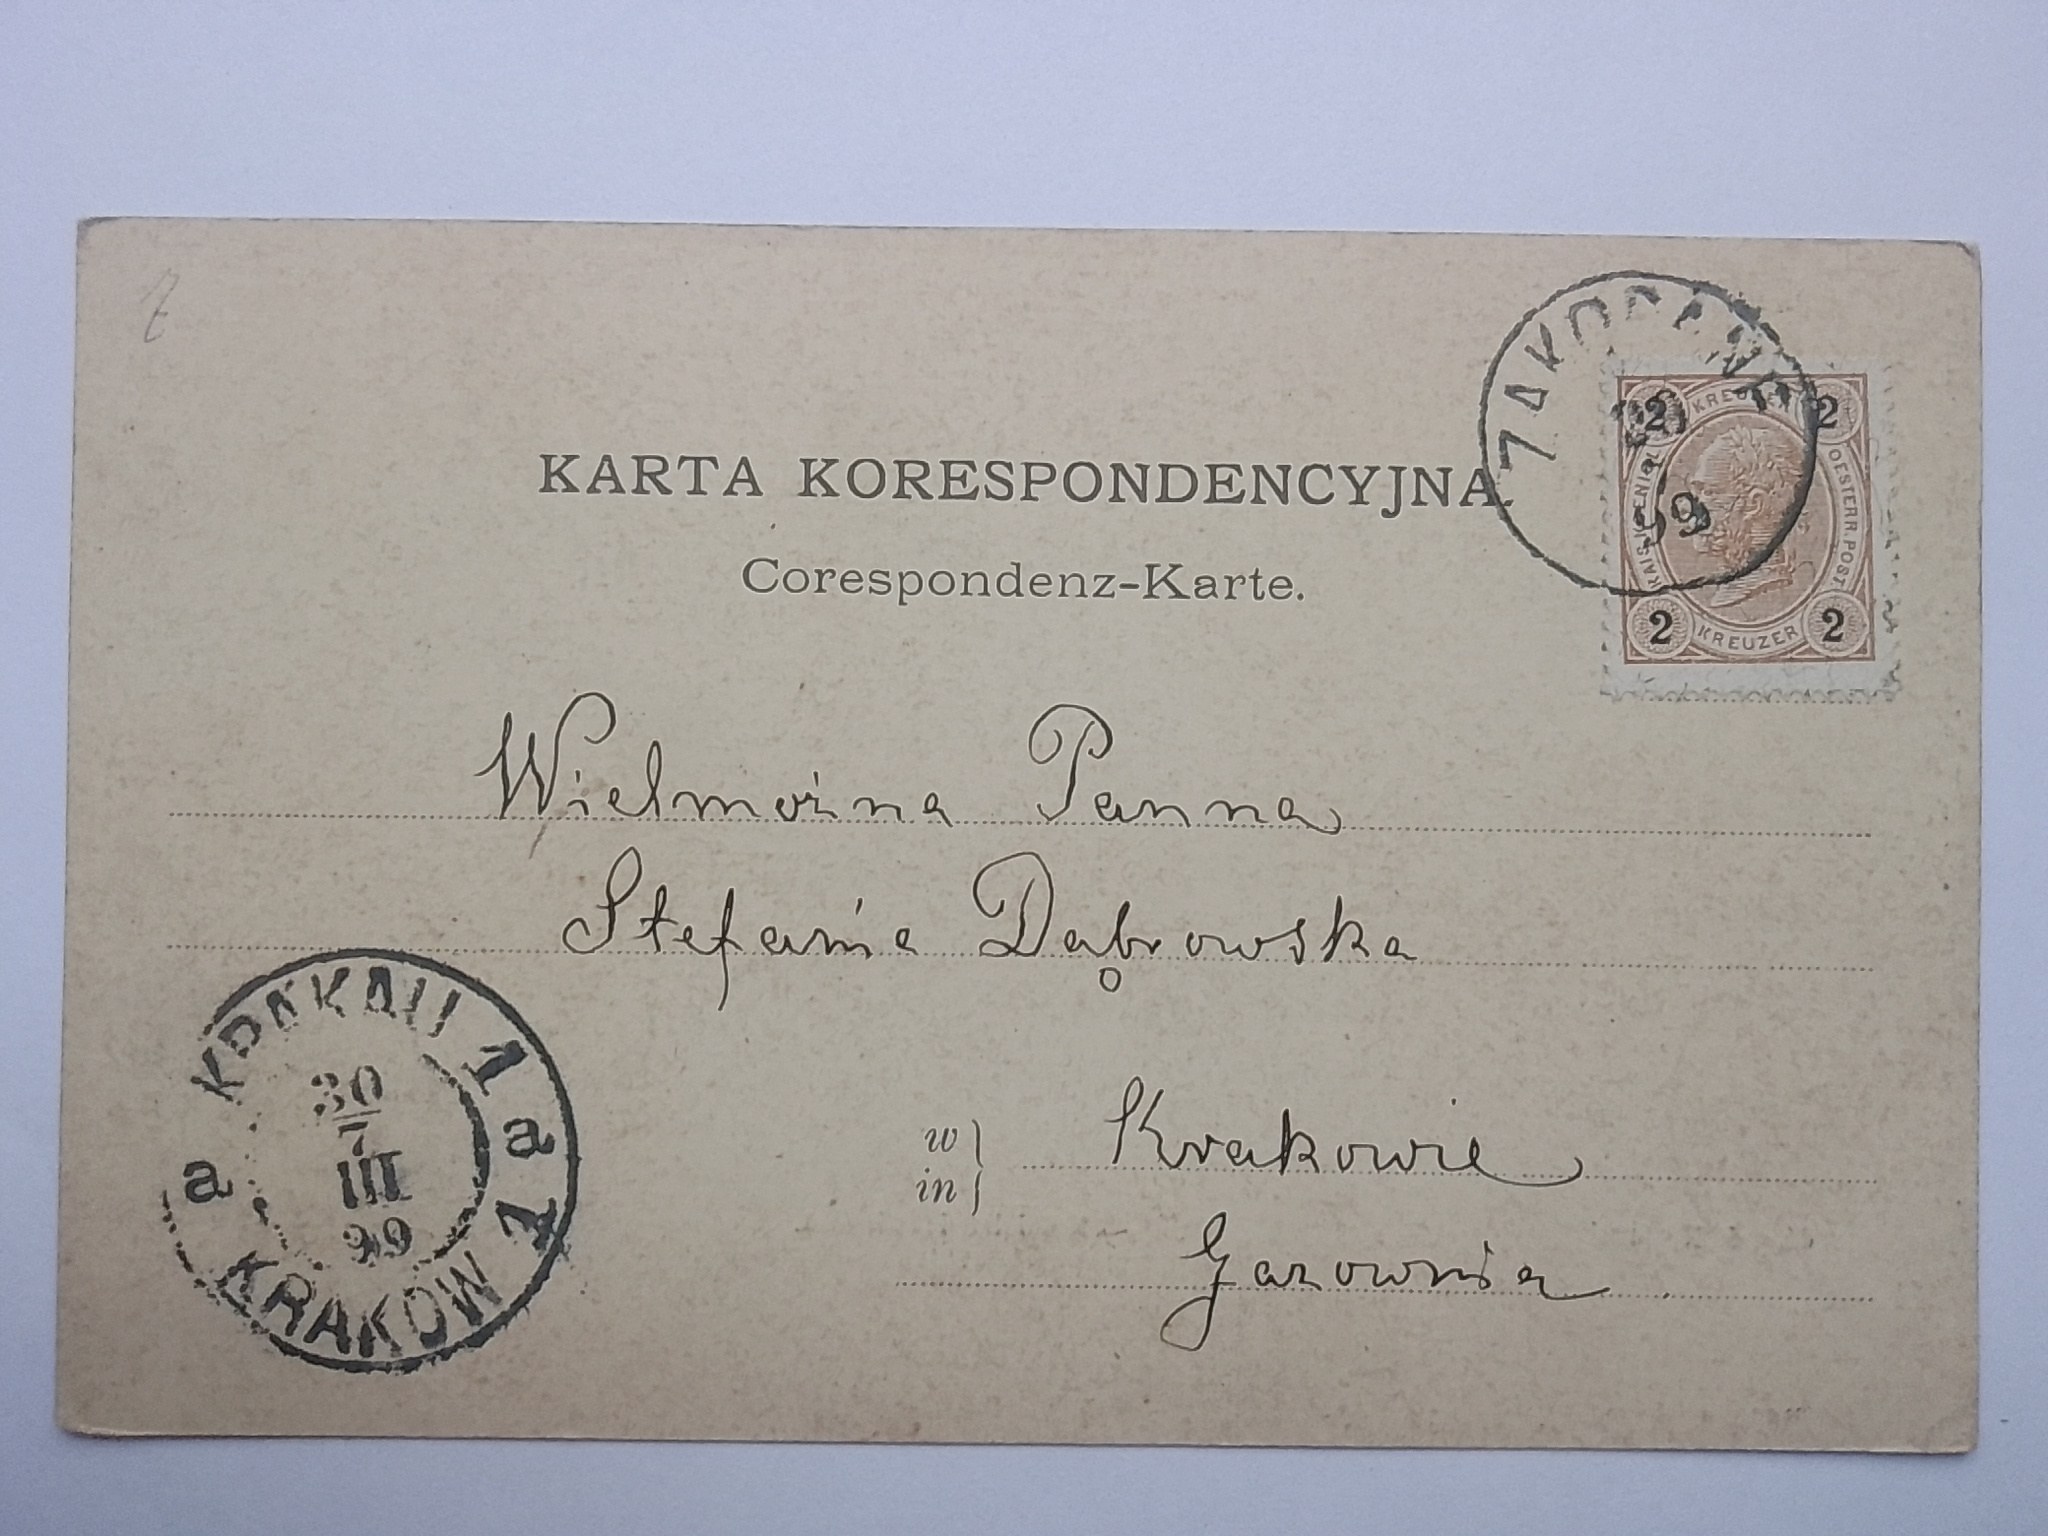 ZAKOPANE
99
2 KREUZER 2
KAIS. KOENIGL. OESTERR. POST.
2 KREUZER 2
KARTA KORESPONDENCYJNA.
Corespondenz-Karte.
Wielmożna Panna
Stefania Dąbrowska
w
in
Krakowie
Gazownia
KRAKAU 1 a
30
7
III
99
a
KRAKÓW 1